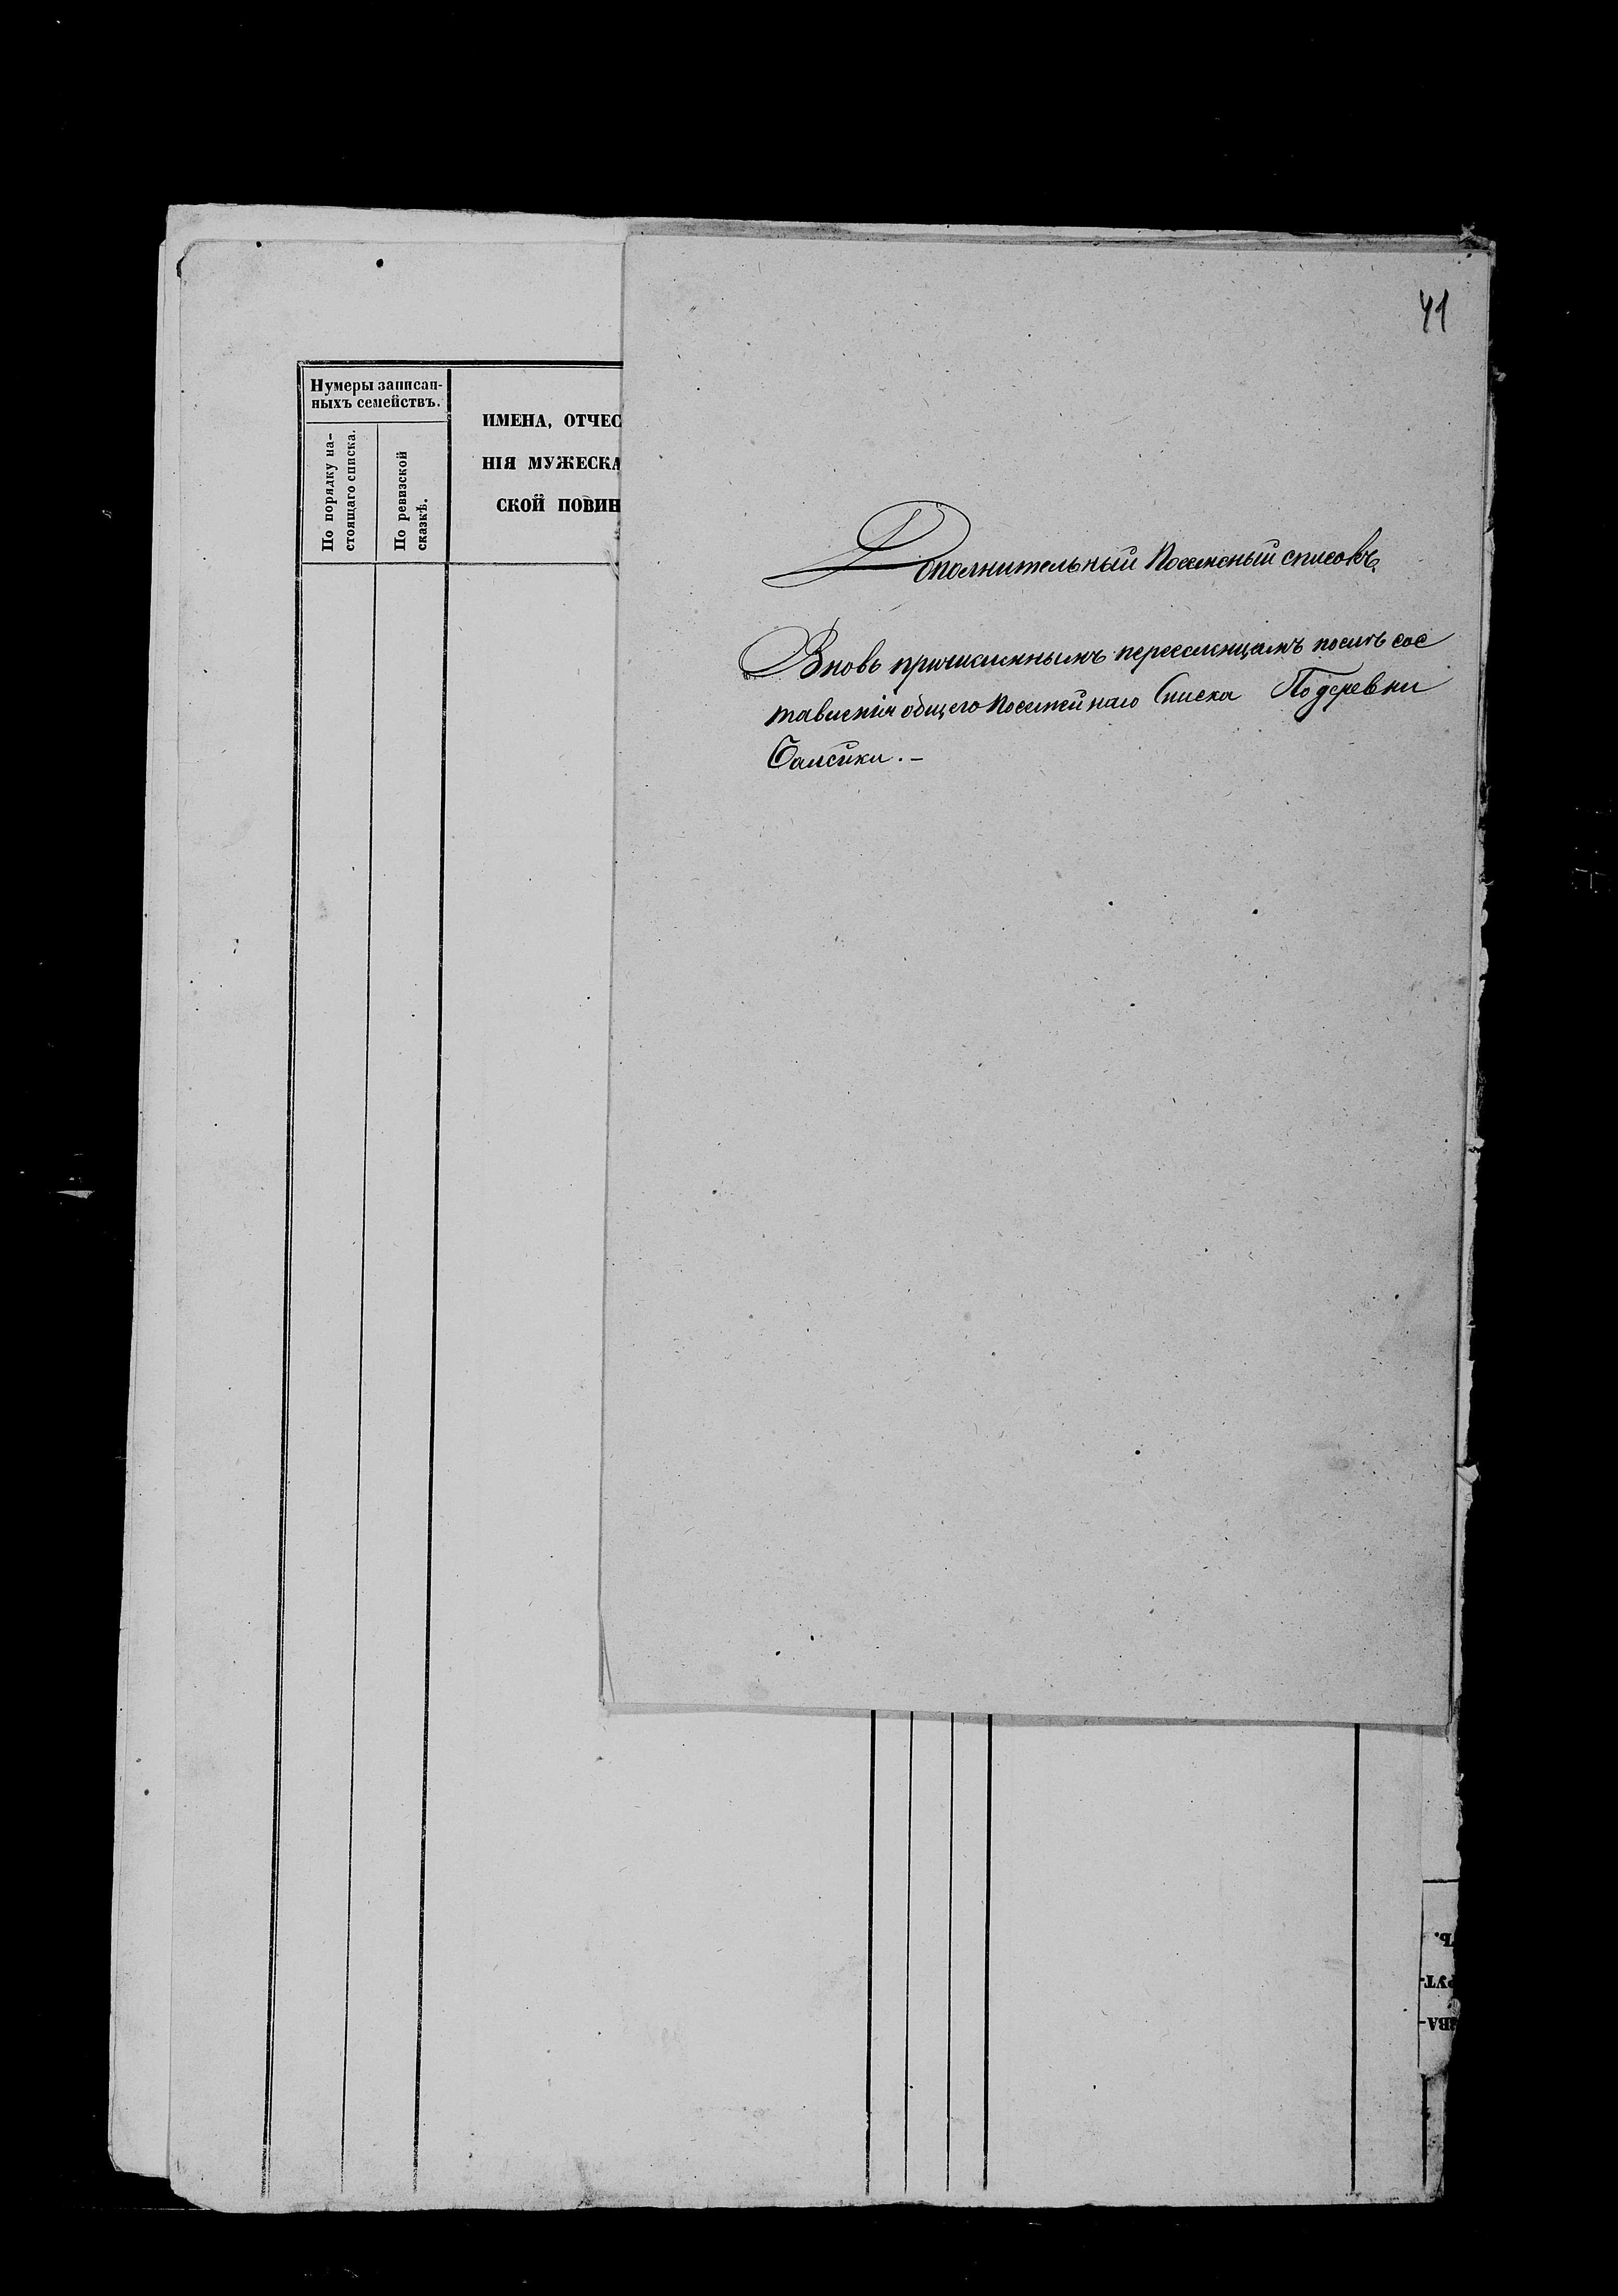 41
Нумеры записан-
ныхъ семействъ.
По порядку на-
стоящаго списка.
По ревизской
сказкѣ.
ИМЕНА, ОТЧЕС
НІЯ МУЖЕСКА
СКОЙ ПОВИН
Дополнительный Посемейный списокъ.
Вновь причисленнымъ переселенцамъ послѣ сос
тавленія общего Посемейнаго Списка По деревни
РУТ-
ВА-